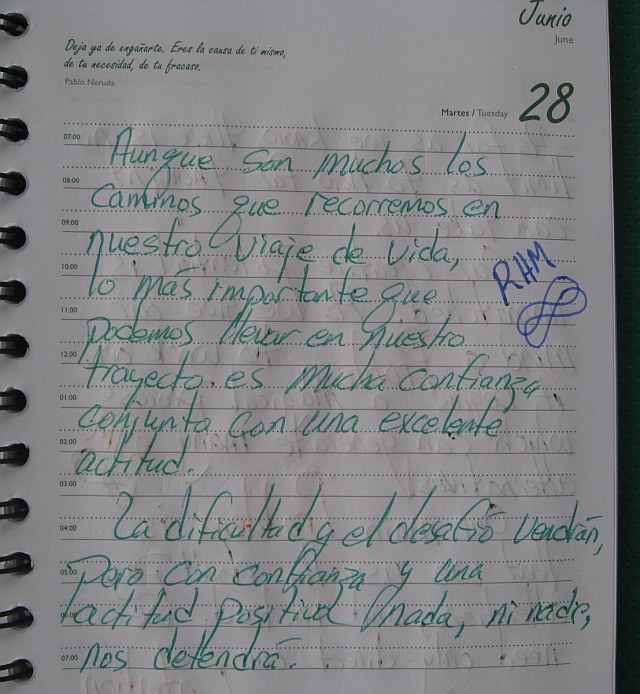 Junio
June
Deja ya de engañarte. Eres la causa de ti mismo,
de tu necesidad, de tu fracaso.
Pablo Neruda
Martes / Tuesday 28
07:00
Aunque son muchos los
08:00
caminos que recorremos en
09:00
nuestro viaje de vida,
RHM
10:00
lo más importante que
11:00
podemos llevar en nuestro
12:00
trayecto es mucha confianza
01:00
conjunta con una excelente
02:00
actitud.
03:00
La dificultad y el desafió vendrán,
04:00
pero con confianza y una
05:00
actitud positiva nada, ni nadie,
nos detendrá.
07:00